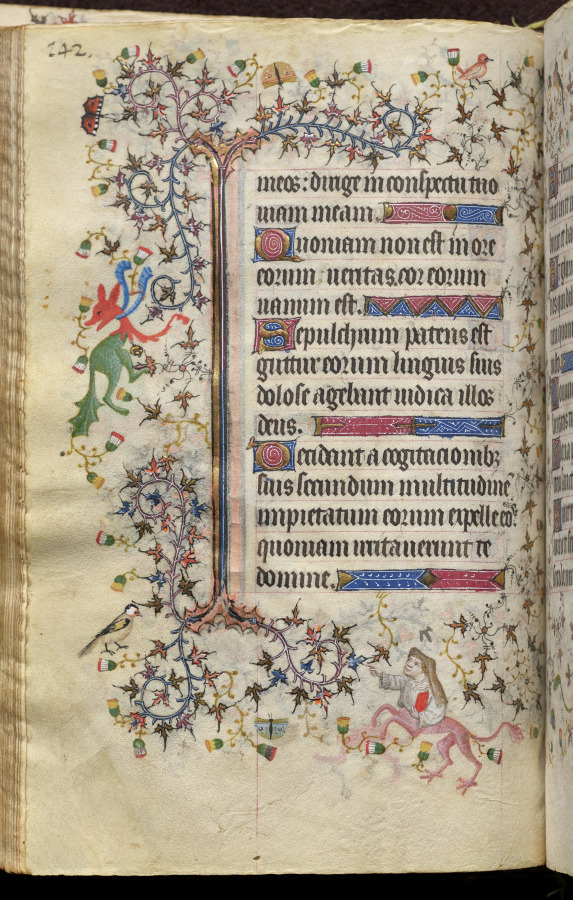 242.
meos : dirige in conspectu tuo
uiam meam.
Quoniam non est in ore
eorum : ueritas, cor eorum
uanum est.
Sepulchrum patens est
guttur eorum linguis suis
dolose agebant iudica illos
deus.
Decidant a cogitacionibz
suis secundum multitudine
impietatum eorum expelle eos
quoniam irritauerunt te
domine.